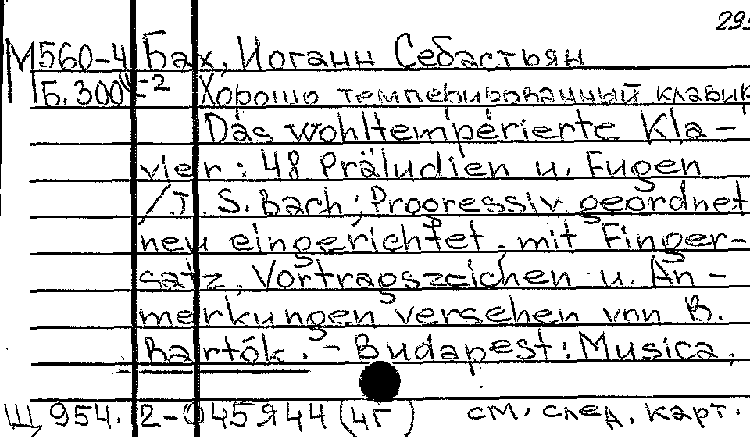 295
М560-4 Бах, Иоганн Себастьян
Б.300 -2 Хорошо темперированный клавир
Das wohltemperierte Kla-
vier : 48 Präludien u. Fugen
/J. S. Bach ; Progressiv geordnet
neu eingerichtet, mit Finger-
satz, Vortragszeichen u. An-
merkungen versehen von B.
Bartók. - Budapest : Musica,
Щ 954. 2-045Я44 (4г) см. след. карт.